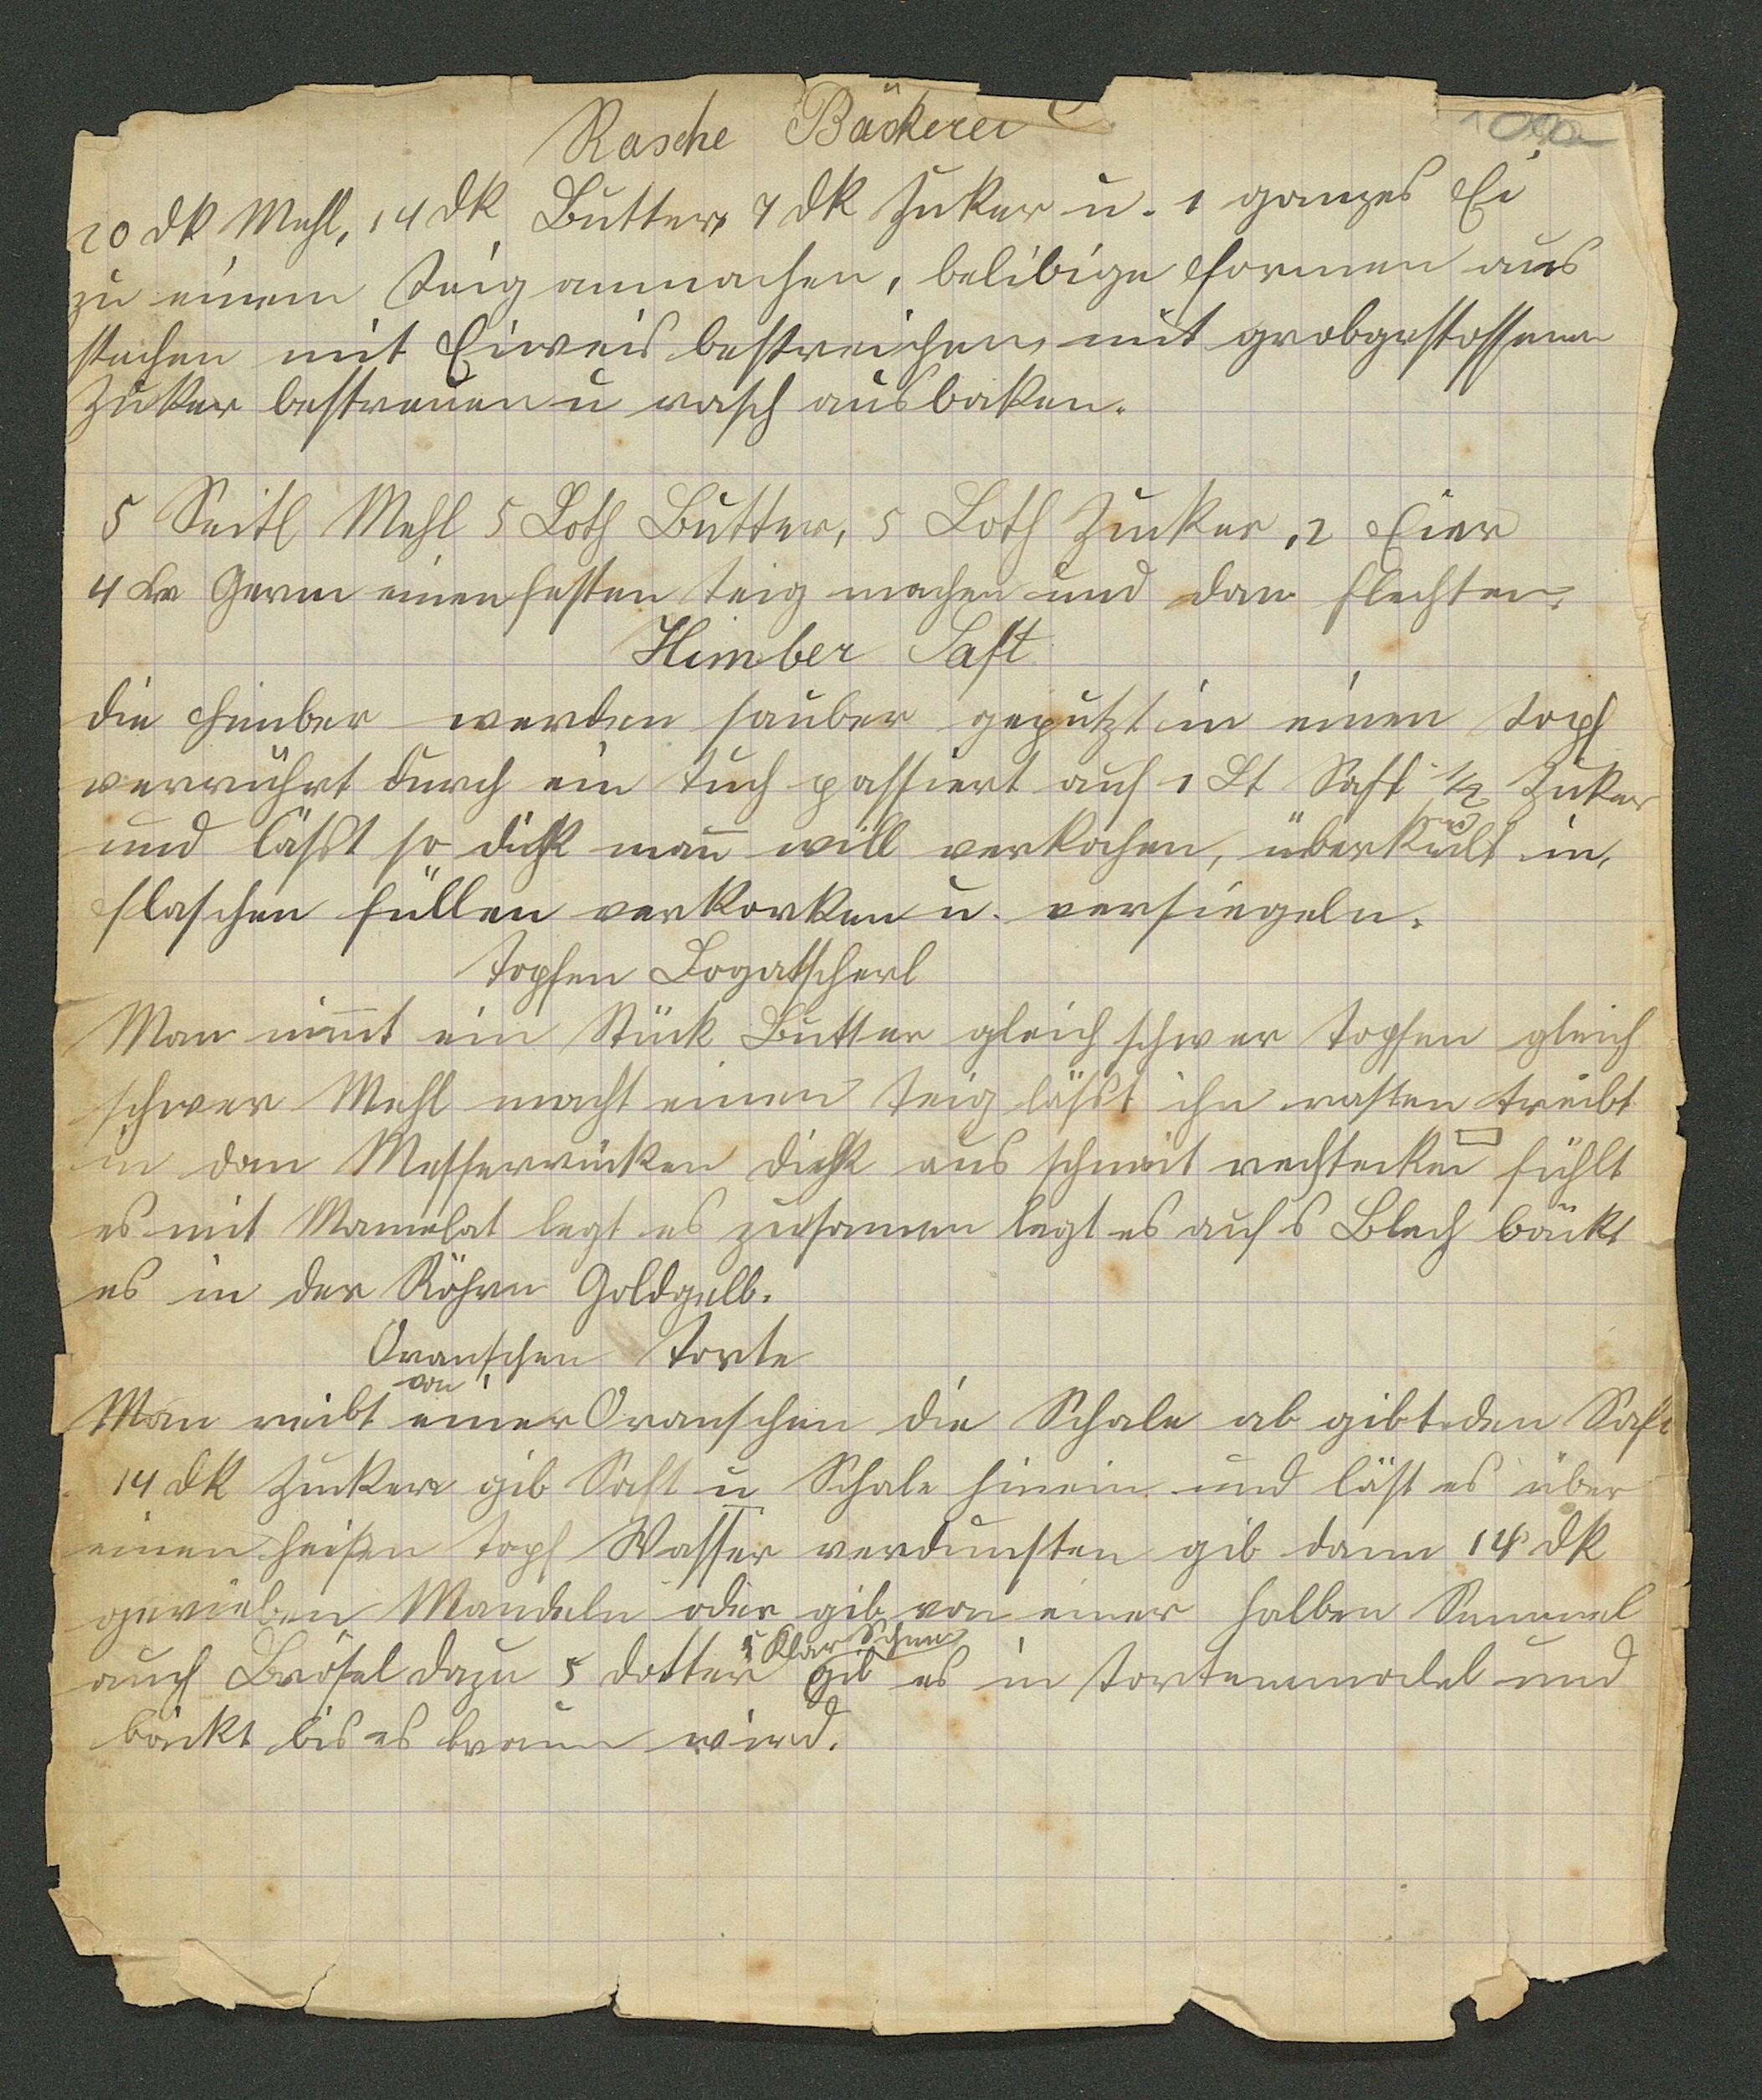 Rasche Bäckerei
20 dk Mehl, 14 dk Butter, 7 dk Zuker u. 1 ganzes Ei
zu einem Teig anmachen, belibige Formen aus
stechen mit Eiweis bestreichen, mit grobgestossenen
Zuker bestreuen u rasch ausbaken.
5 Seitl Mehl 5 Loth Butter, 5 Loth Zucker, 2 Eier
4 Germ einen festen Teig machen und dan flechten.
Himber Saft
die Himber werden sauber geputzt in einen Topf
verrührt durch ein Tuch passiert auf 1 Lt Saft 1/2 Zuker
und läßt so dick man̄ will verkochen, überkült in
Flaschen füllen verkorken u. versiegeln.
Topfen Bogatscherl
Man nim̄t ein Stück Butter gleich schwer Topfen gleich
schwer Mehl macht einen Teig läßt ihn rasten treibt
in dan Messerrücken dick aus schneit rechtecke fühlt
es mit Mamelat legt es zusamen legt es auf s Blech bäckt
es in der Röhre Goldgelb.
Oranschen Torte
Man reibt von einer Oranschen die Schale ab gibt den Saft
14 dk Zucker gib Saft u Schale hinein und läst es über
einen heißen Topf Wasser verdunsten gib dann 14 dk
gerieben Mandeln oder gib von einer halben Semmel
auch Brösel dazu 5 dotter 5 Klar Schnee gib es in Tortenmodel und
bäckt bis es braun wird.